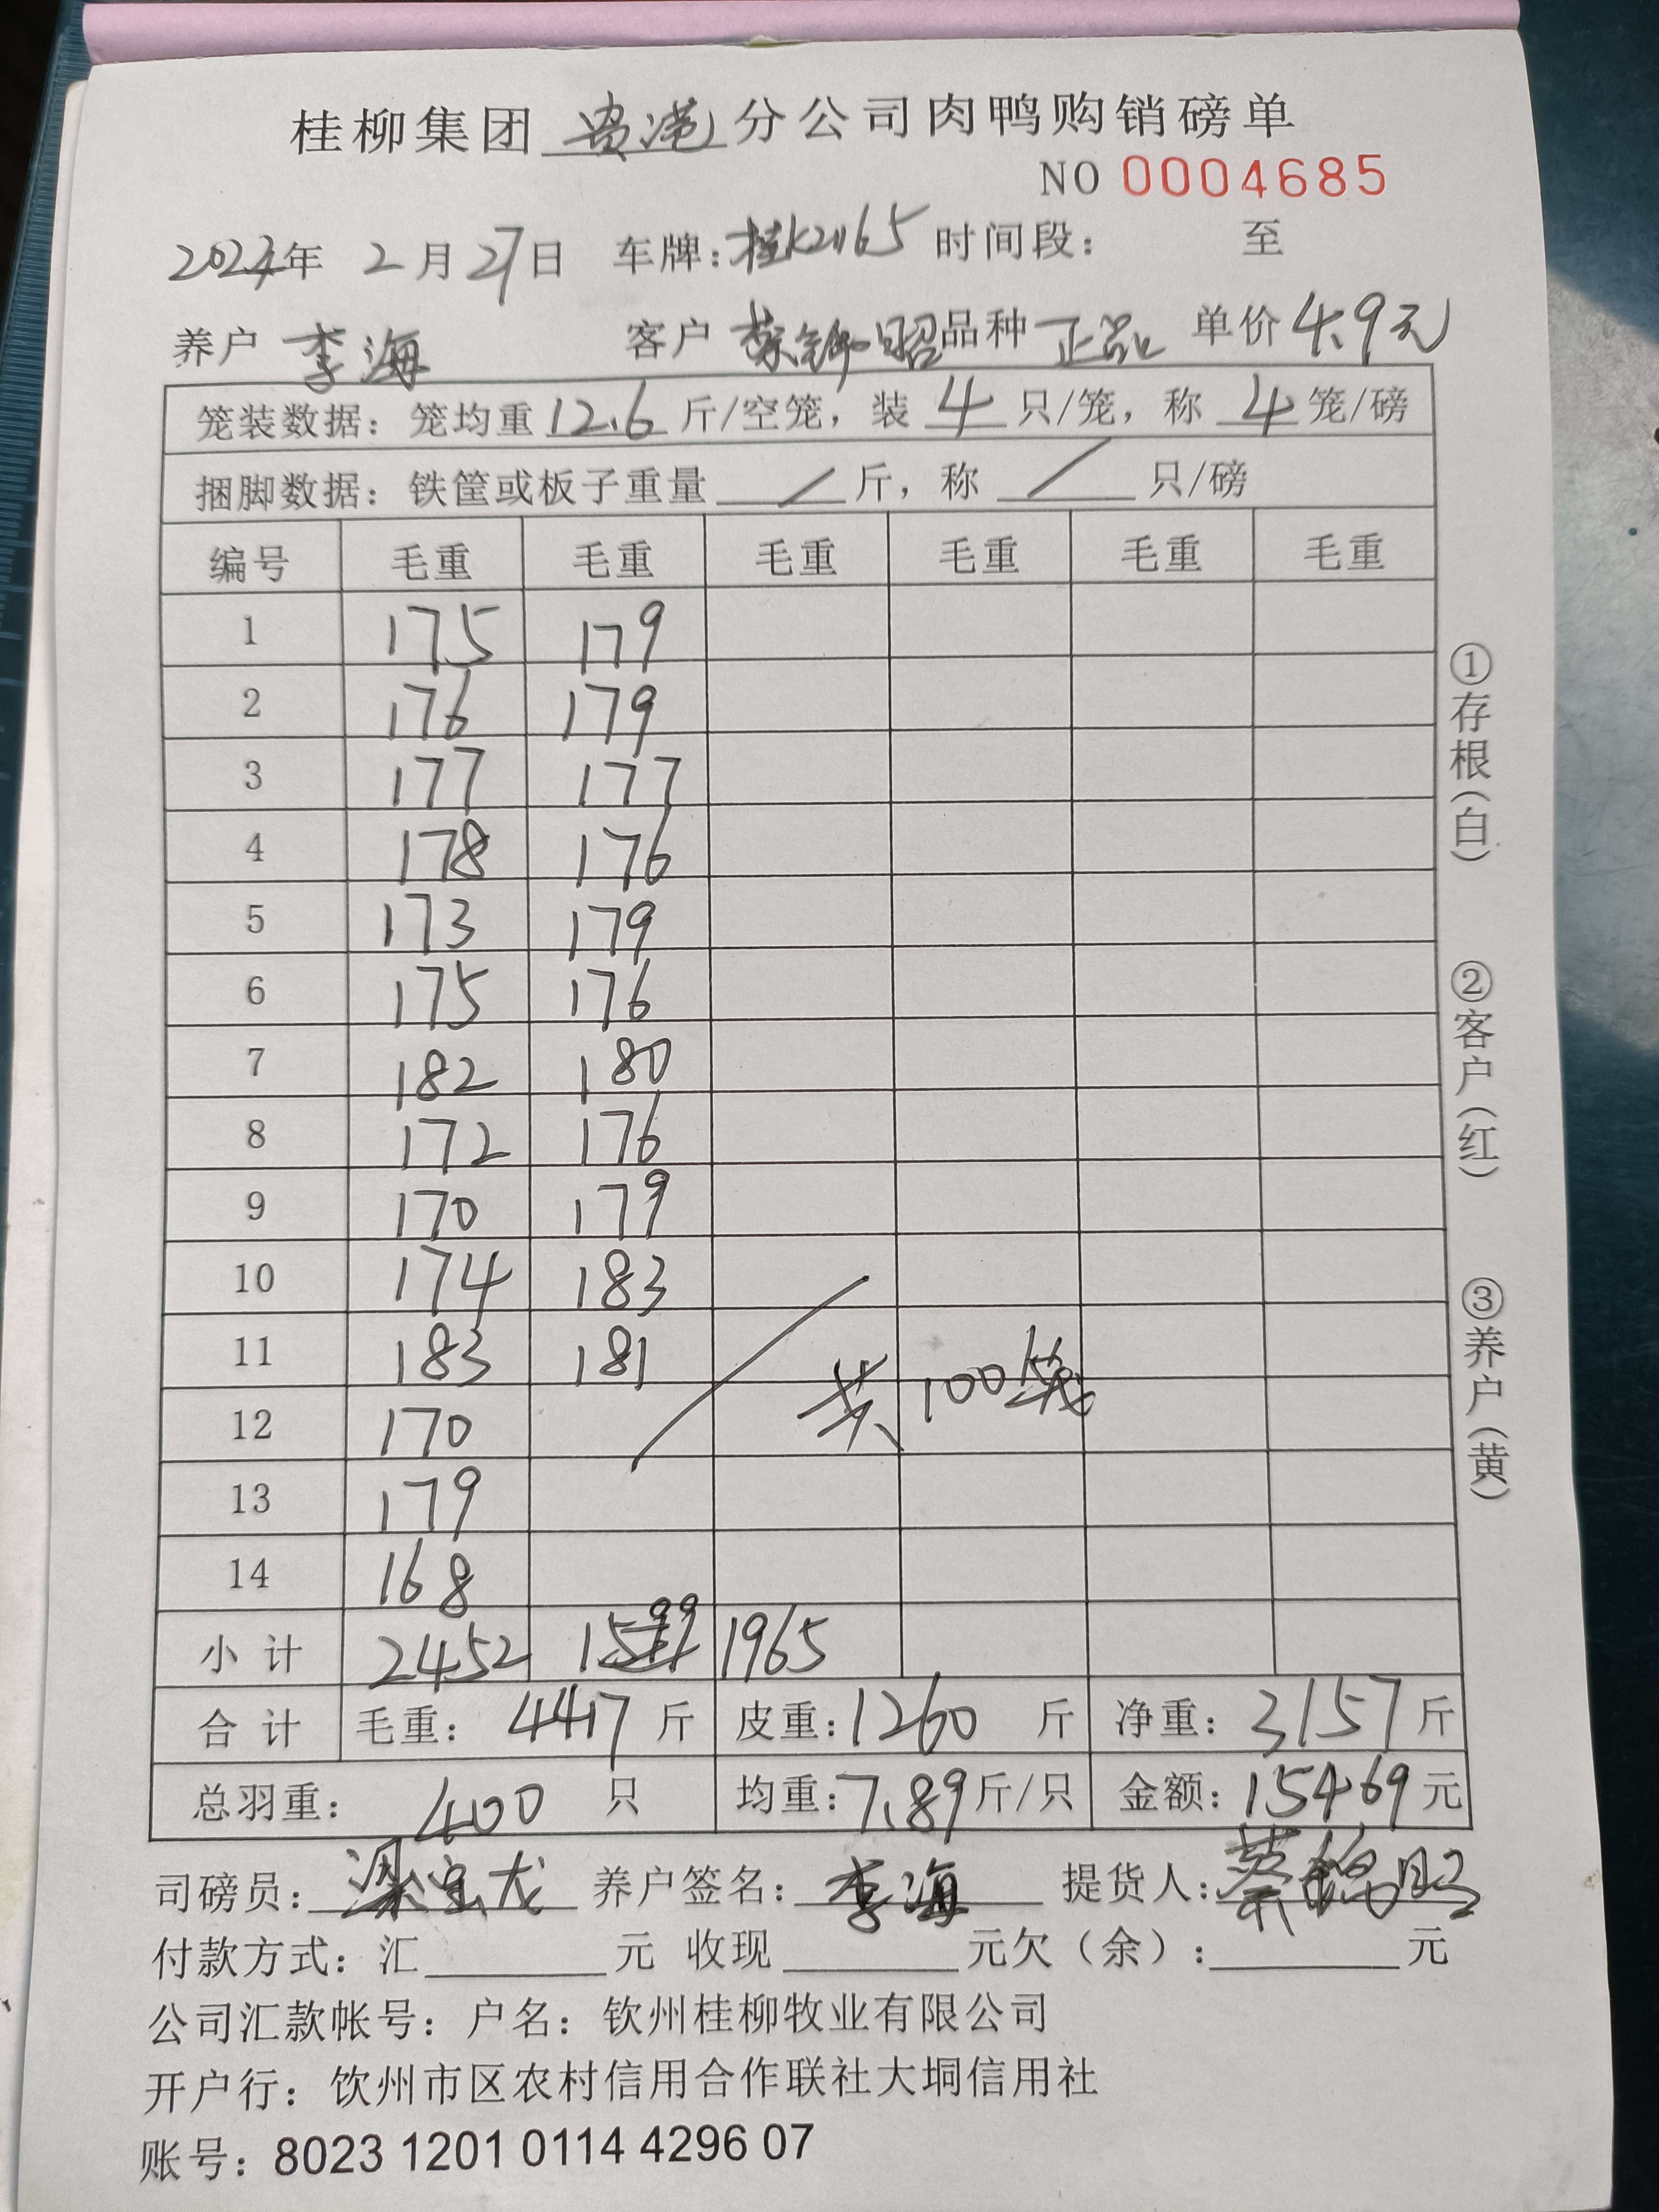 桂柳集团 贵港 分公司肉鸭购销磅单
NO 0004685
2024年 2月27日 车牌:桂K21165 时间段: 至
养户 李海 客户 蔡锦昭 品种 正品 单价 4.9元
笼装数据: 笼均重 12.6 斤/空笼, 装 4 只/笼, 称 4 笼/磅
捆脚数据: 铁筐或板子重量 / 斤, 称 / 只/磅
编号 毛重 毛重 毛重 毛重 毛重 毛重
1 175 179
2 176 179
3 177 177
4 178 176
5 173 179
6 175 176
7 182 180
8 172 176
9 170 179
10 174 183
11 183 181
12 170 共100笼
13 179
14 168
小计 2452 1965
合计 毛重: 4417 斤 皮重: 1260 斤 净重: 3157 斤
总羽重: 400 只 均重: 7.89 斤/只 金额: 15469 元
司磅员: 梁宝龙 养户签名: 李海 提货人: 蔡锦昭
付款方式: 汇 元 收现 元欠(余): 元
公司汇款帐号: 户名: 钦州桂柳牧业有限公司
开户行: 饮州市区农村信用合作联社大垌信用社
账号: 8023 1201 0114 4296 07
①存根(白)
②客户(红)
③养户(黄)